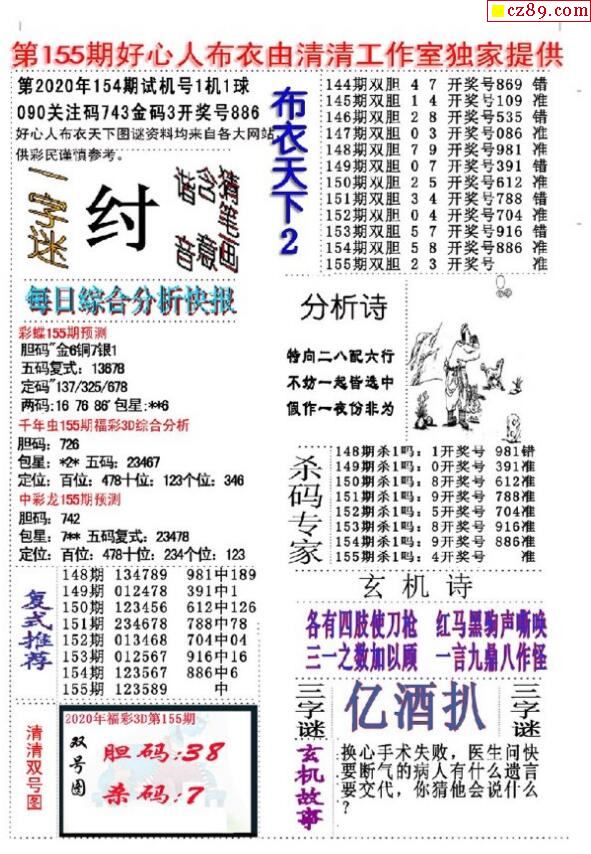 cz89.com
第155期好心人布衣由清清工作室独家提供
第2020年154期试机号1机1球
090关注码743金码3开奖号886
好心人布衣天下图谜资料均来自各大网站,
供彩民谨慎参考。
一字迷
纣
谐音
含意
猜笔画
布衣天下2
144期双胆 4 7 开奖号869 错
145期双胆 1 4 开奖号109 准
146期双胆 2 8 开奖号535 错
147期双胆 0 3 开奖号086 准
148期双胆 7 9 开奖号981 准
149期双胆 0 7 开奖号391 错
150期双胆 2 5 开奖号612 准
151期双胆 3 4 开奖号788 错
152期双胆 0 4 开奖号704 准
153期双胆 5 7 开奖号916 错
154期双胆 5 8 开奖号886 准
155期双胆 2 3 开奖号 准
每日综合分析快报
彩蝶155期预测
胆码"金6铜7银1
五码复式：13678
定码"137/325/678
两码:16 76 86" 包星:**6
千年虫155期福彩3D综合分析
胆码：726
包星：*2* 五码：23467
定位：百位：478十位：123个位：346
中彩龙155期预测
胆码：742
包星：7** 五码复式：23478
定位：百位：478十位：234个位：123
分析诗
特向二八配六行
不妨一起皆选中
假作一夜份非为
杀码专家
148期杀1吗：1开奖号 981错
149期杀1吗：0开奖号 391准
150期杀1吗：8开奖号 612准
151期杀1吗：9开奖号 788准
152期杀1吗：5开奖号 704准
153期杀1吗：8开奖号 916准
154期杀1吗：9开奖号 886准
155期杀1吗：4开奖号 准
复式推荐
148期 134789 981中189
149期 012478 391中1
150期 123456 612中126
151期 234678 788中78
152期 013468 704中04
153期 012567 916中16
154期 123567 886中6
155期 123589 中
玄机诗
各有四肢使刀枪 红马黑驹声嘶唤
三一之数加以顾 一言九鼎八作怪
三字谜
亿酒扒
三字谜
清清双号图
2020年福彩3D第155期
双号图
胆码:38
杀码:7
玄机故事
换心手术失败，医生问快
要断气的病人有什么遗言
要交代，你猜他会说什么
？